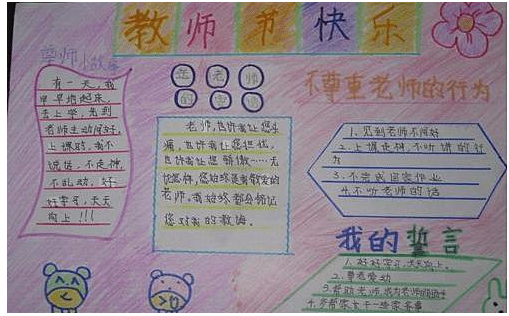 教师节快乐
尊师小故事
有一天，我
早早地起床，
去上学，见到
老师主动问好，
上课时，我不
说话，不走神，
不乱动，好
好学习，天天
向上！！！
老师
的
老师，也许我让您头
痛，也许我让您担忧，
也许我让您骄傲……无
论怎样，您始终是我敬爱的
老师，我始终都会铭记
您对我的教诲。
不尊重老师的行为
1.见到老师不问好
2.上课走神，不听讲的行
为
3.不完成回家作业
4.不听老师的话
我的誓言
1.好好学习，天天向上。
2.尊老爱幼
3.帮助老师，成为老师的助手
4.多帮家长干一些家务事